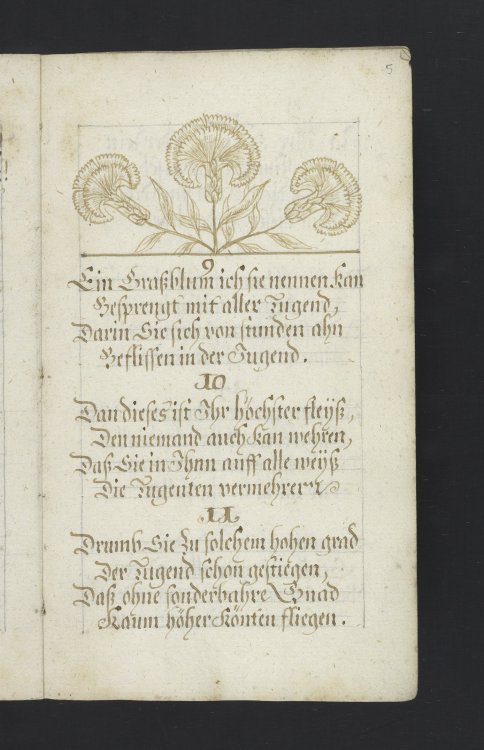 5
9
Ein Graßblum ich sie nennen kan
Gesprengt mit aller Tugend,
Darin Sie sich von stunden ahn
Geflissen in der Jugend.
10
Dan dieses ist Ihr höchster fleyß,
Den niemand auch kan wehren,
Daß Sie in Ihnn auff alle weyß
Die Tugenten vermehren
11
Drumb Sie zu solchem hohen grad
Der Tugend schon gestiegen,
Daß ohne sonderbahre Gnad
Kaum höher könten fliegen.